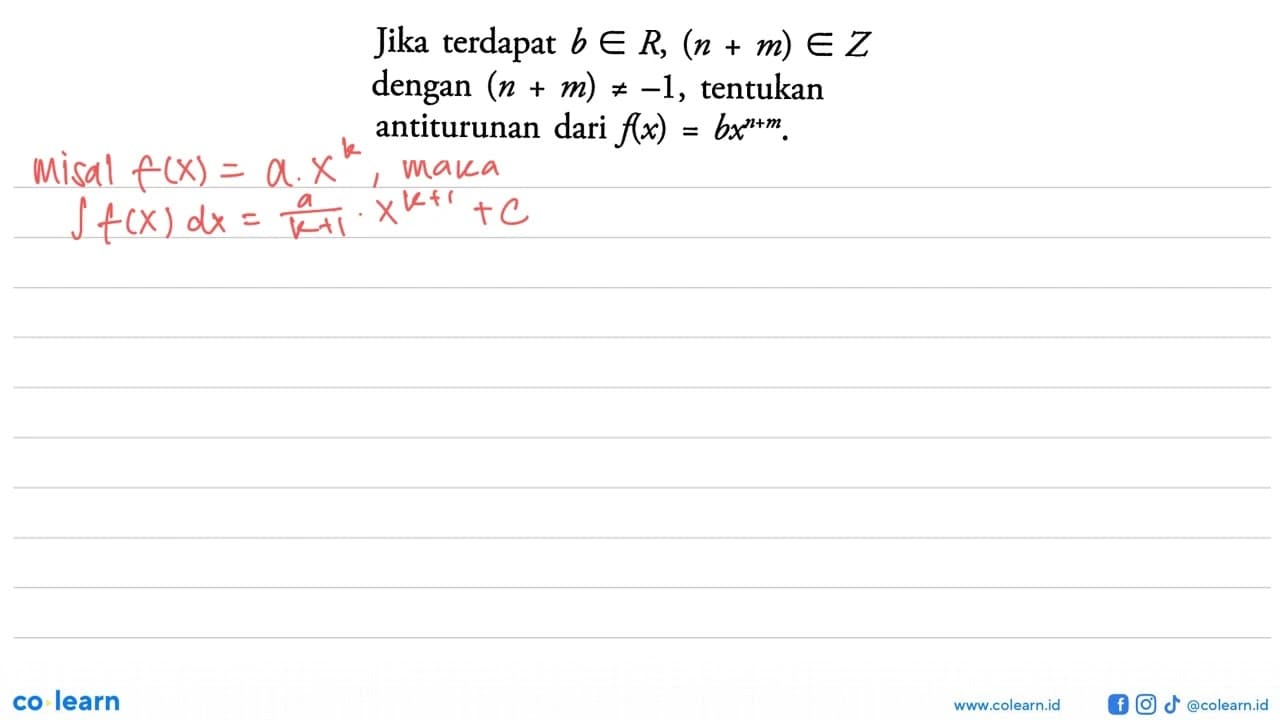 Jika terdapat b ∈ R, (n + m) ∈ Z
dengan (n + m) ≠ −1, tentukan
antiturunan dari f(x) = bxⁿ⁺ᵐ.
misal f(x) = a.x^k, maka
∫ f(x) dx = a/(k+1) · x^(k+1) + C
co·learn
www.colearn.id @colearn.id